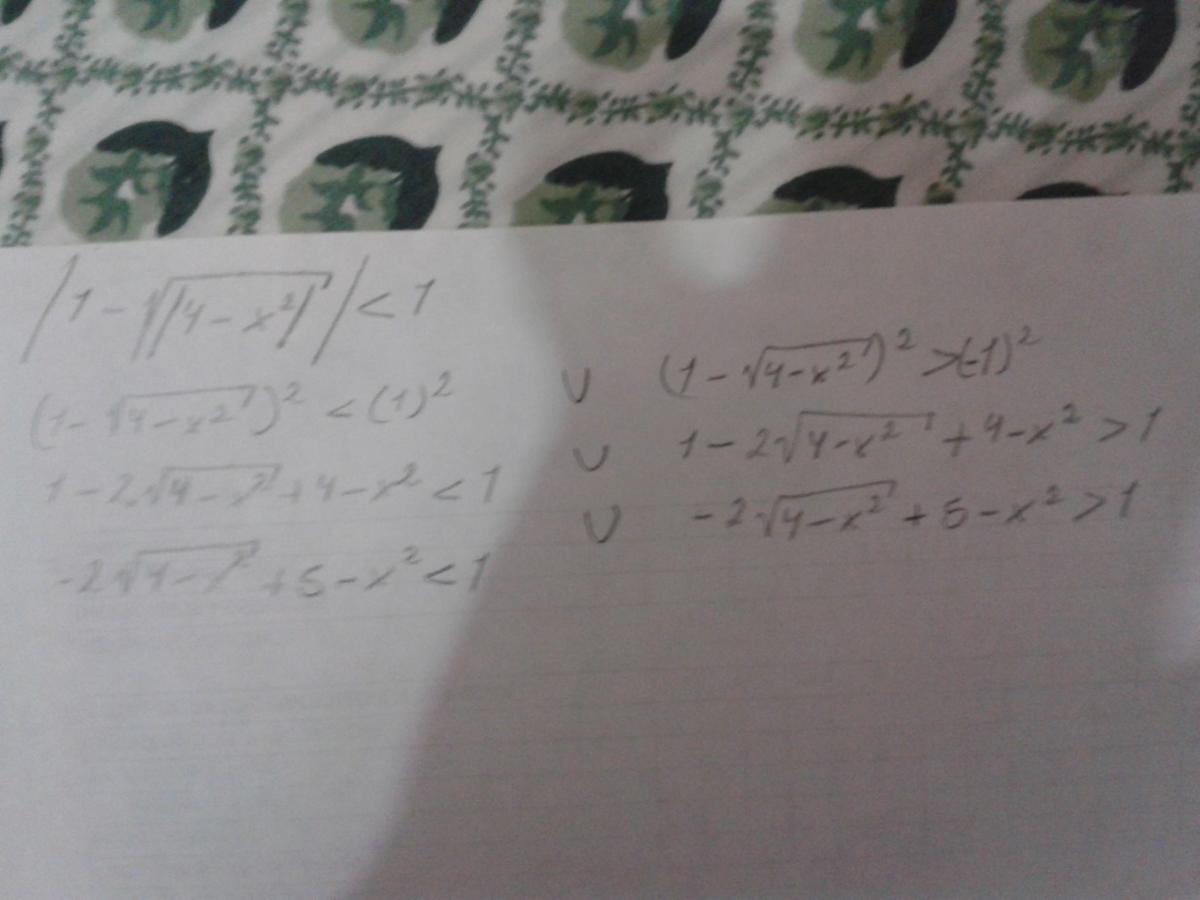 |1-√|4-x²||<1
(1-√4-x²)²<(1)² ∪ (1-√4-x²)²>(-1)²
1-2√4-x²+4-x²<1 ∪ 1-2√4-x²+4-x²>1
-2√4-x²+5-x²<1 ∪ -2√4-x²+5-x²>1